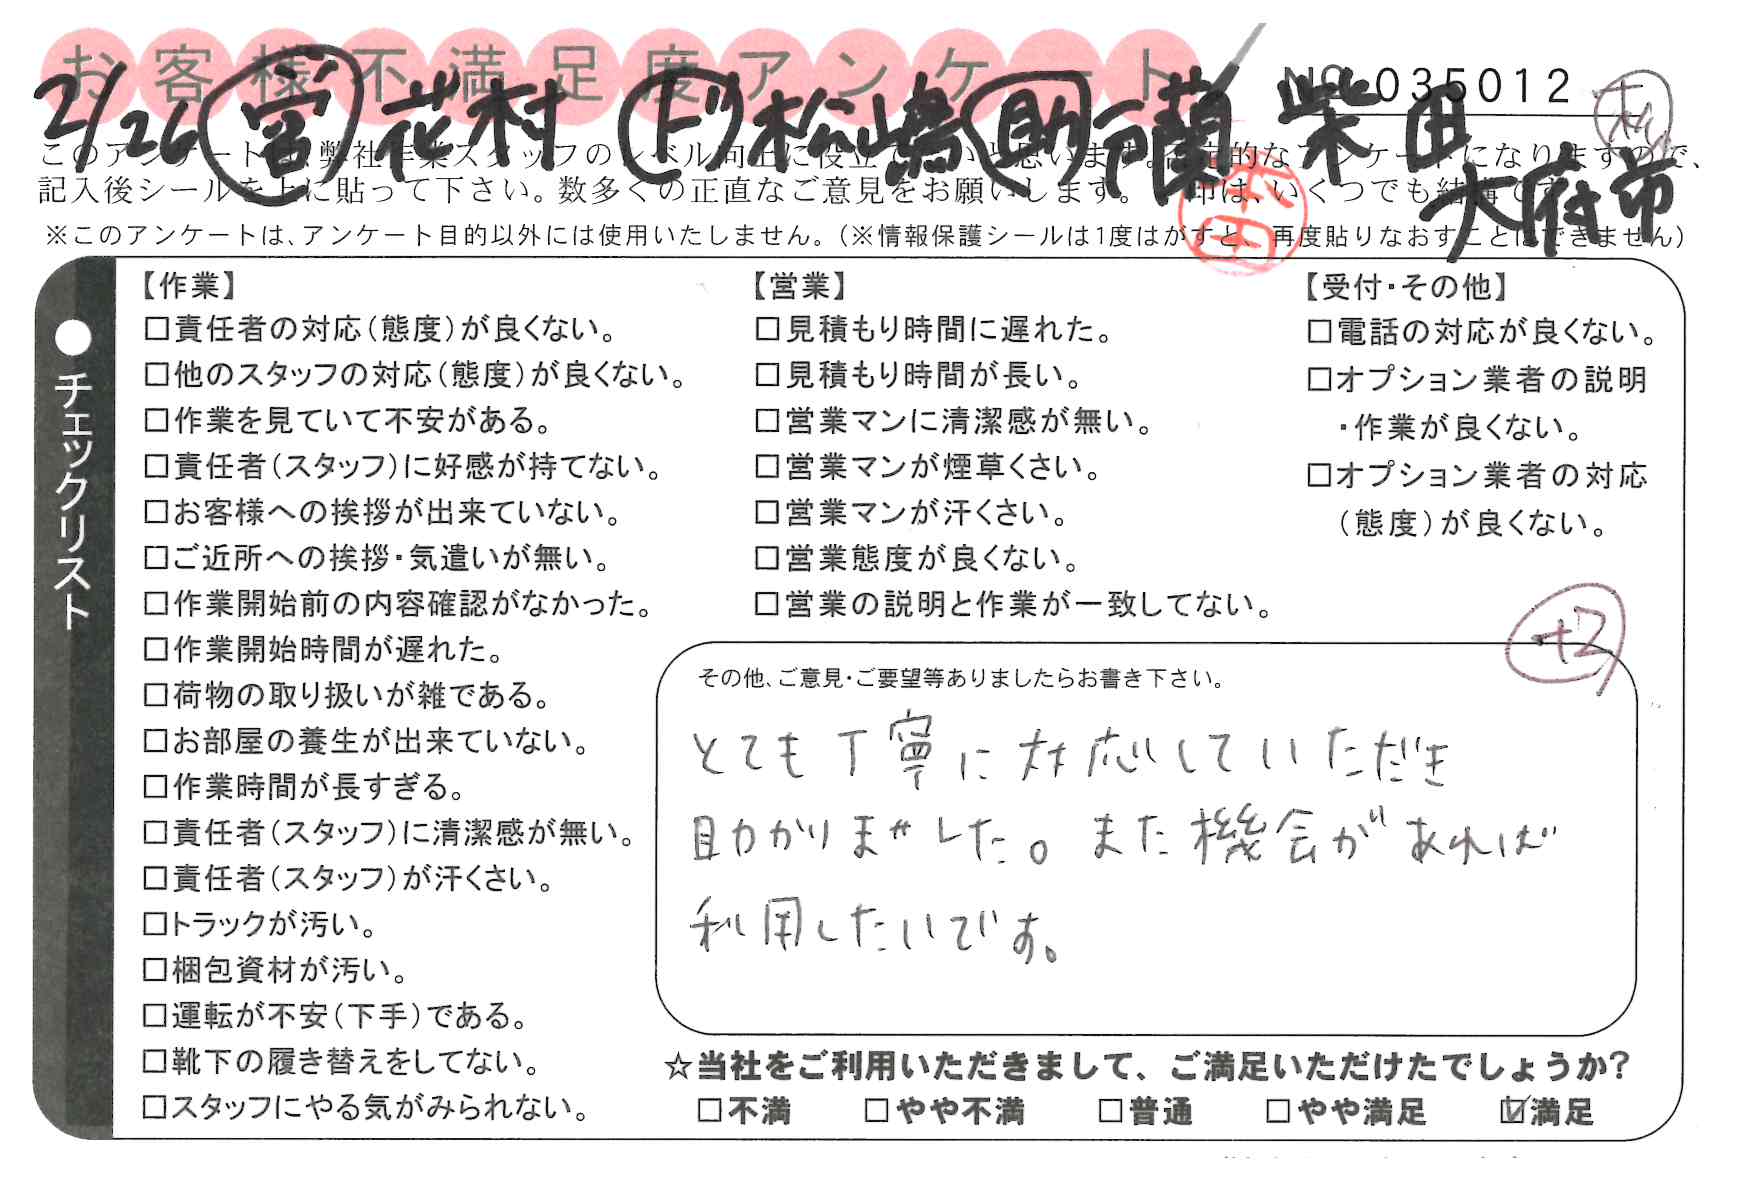 お客様不満足度アンケート
NO 035012
2/26 営 花村 ド 松嶋 助 市蘭 柴田 大府市
このアンケートは、弊社作業スタッフのレベル向上に役立てたいと思います。否定的なアンケートになりますので、
記入後シールを上に貼って下さい。数多くの正直なご意見をお願いします。 印は、いくつでも結構です
※このアンケートは、アンケート目的以外には使用いたしません。(※情報保護シールは1度はがすと、再度貼りなおすことはできません)
●チェックリスト
【作業】
□責任者の対応(態度)が良くない。
□他のスタッフの対応(態度)が良くない。
□作業を見ていて不安がある。
□責任者(スタッフ)に好感が持てない。
□お客様への挨拶が出来ていない。
□ご近所への挨拶・気遣いが無い。
□作業開始前の内容確認がなかった。
□作業開始時間が遅れた。
□荷物の取り扱いが雑である。
□お部屋の養生が出来ていない。
□作業時間が長すぎる。
□責任者(スタッフ)に清潔感が無い。
□責任者(スタッフ)が汗くさい。
□トラックが汚い。
□梱包資材が汚い。
□運転が不安(下手)である。
□靴下の履き替えをしてない。
□スタッフにやる気がみられない。
【営業】
□見積もり時間に遅れた。
□見積もり時間が長い。
□営業マンに清潔感が無い。
□営業マンが煙草くさい。
□営業マンが汗くさい。
□営業態度が良くない。
□営業の説明と作業が一致してない。
【受付・その他】
□電話の対応が良くない。
□オプション業者の説明
・作業が良くない。
□オプション業者の対応
(態度)が良くない。
+2
その他、ご意見・ご要望等ありましたらお書き下さい。
とても丁寧に対応していただき
助かりました。また機会があれば
利用したいです。
☆当社をご利用いただきまして、ご満足いただけたでしょうか?
□不満 □やや不満 □普通 □やや満足 ☑満足